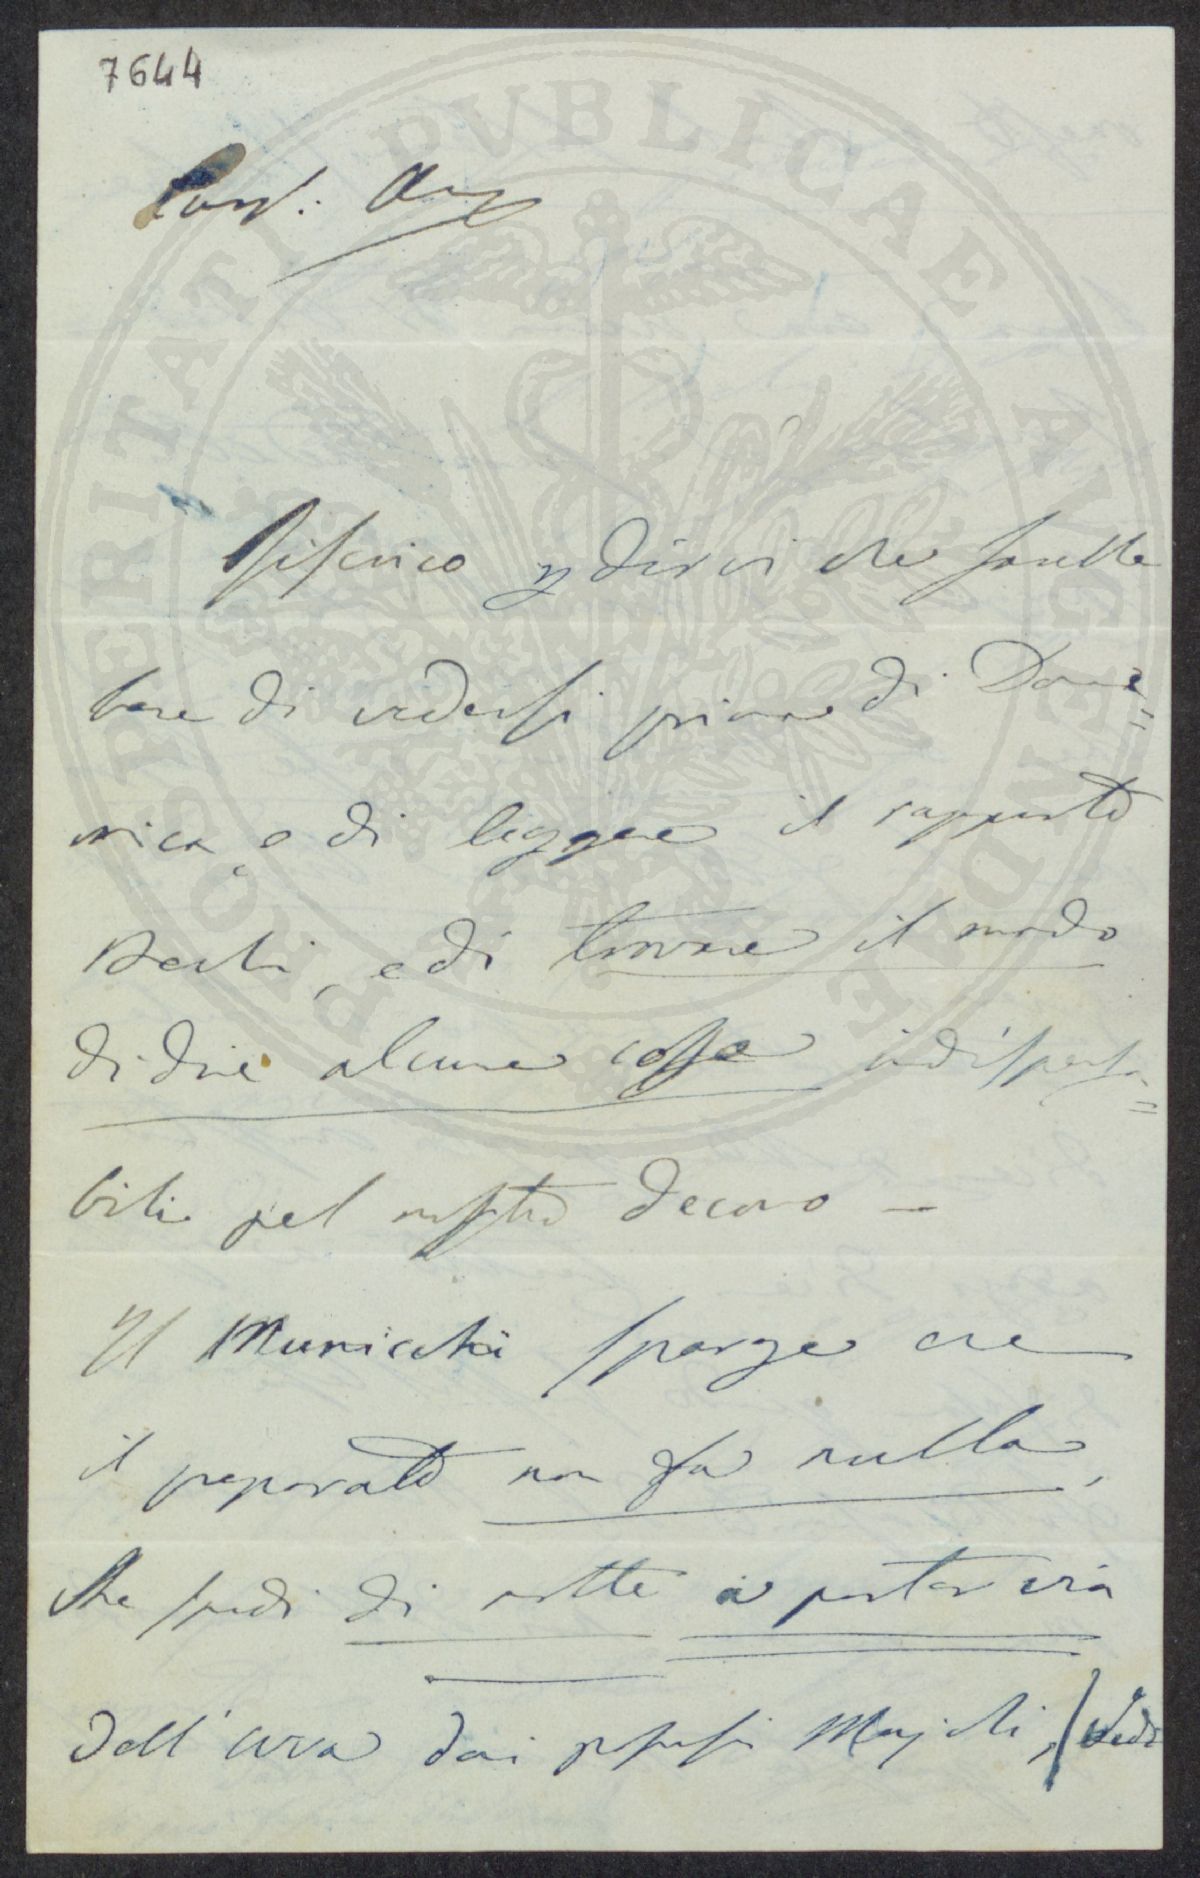 7644
Amo
scrivo p dirvi che sarebbe
bene di vedersi prima di Dome=
nica, e di leggere il rapporto
e di trovare il modo
di dire alcune cosse indispensa=
bili pel nostro decoro —
Il Municchi sparge che
il preparato non fa nulla,
che spedì di notte a portar via
dell'uva dai possessi Majoli, / Vedi
PROSPERITATI PVBLICAE AVGENDAE